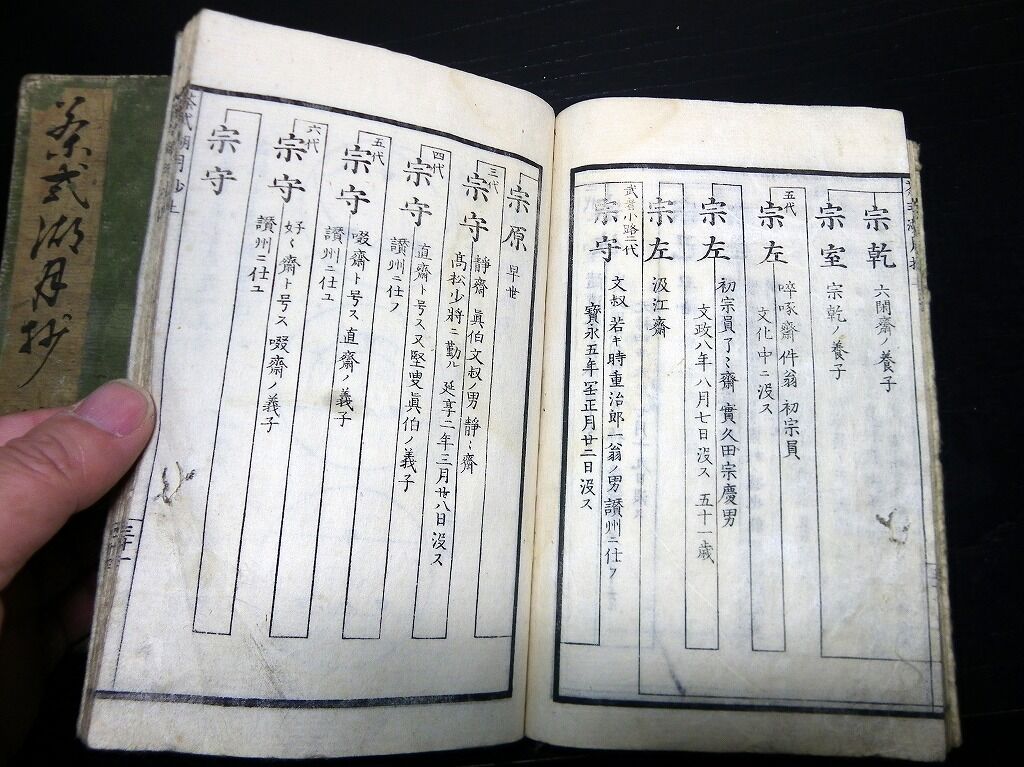 宗乾
六閑齋ノ養子
宗室
宗乾ノ養子
五代
宗左
啐啄齋件翁 初宗員
文化中ニ没ス
宗左
初宗員了〻齋 實久田宗慶男
文政八年八月七日没ス 五十一歳
宗左
汲江齋
武者小路二代
宗守
文叔 若キ時重治郎 一翁ノ男 讃州ニ仕フ
寳永五年 正月廿二日没ス
宗原
早世
三代
宗守
靜齋 眞伯 文叔ノ男 靜〻齋
髙松少將ニ勤ル 延享二年三月廿八日没ス
四代
宗守
直齋ト号ス又堅叟 眞伯ノ義子
讃州ニ仕フ
五代
宗守
啜齋ト号ス 直齋ノ義子
讃州ニ仕ユ
六代
宗守
好〻齋ト号ス 啜齋ノ義子
讃州ニ仕ユ
宗守
三十一
茶式湖月抄